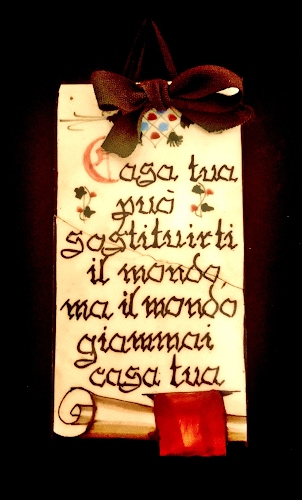 Casa tua
può
sostituirti
il mondo,
ma il mondo
giammai
casa tua